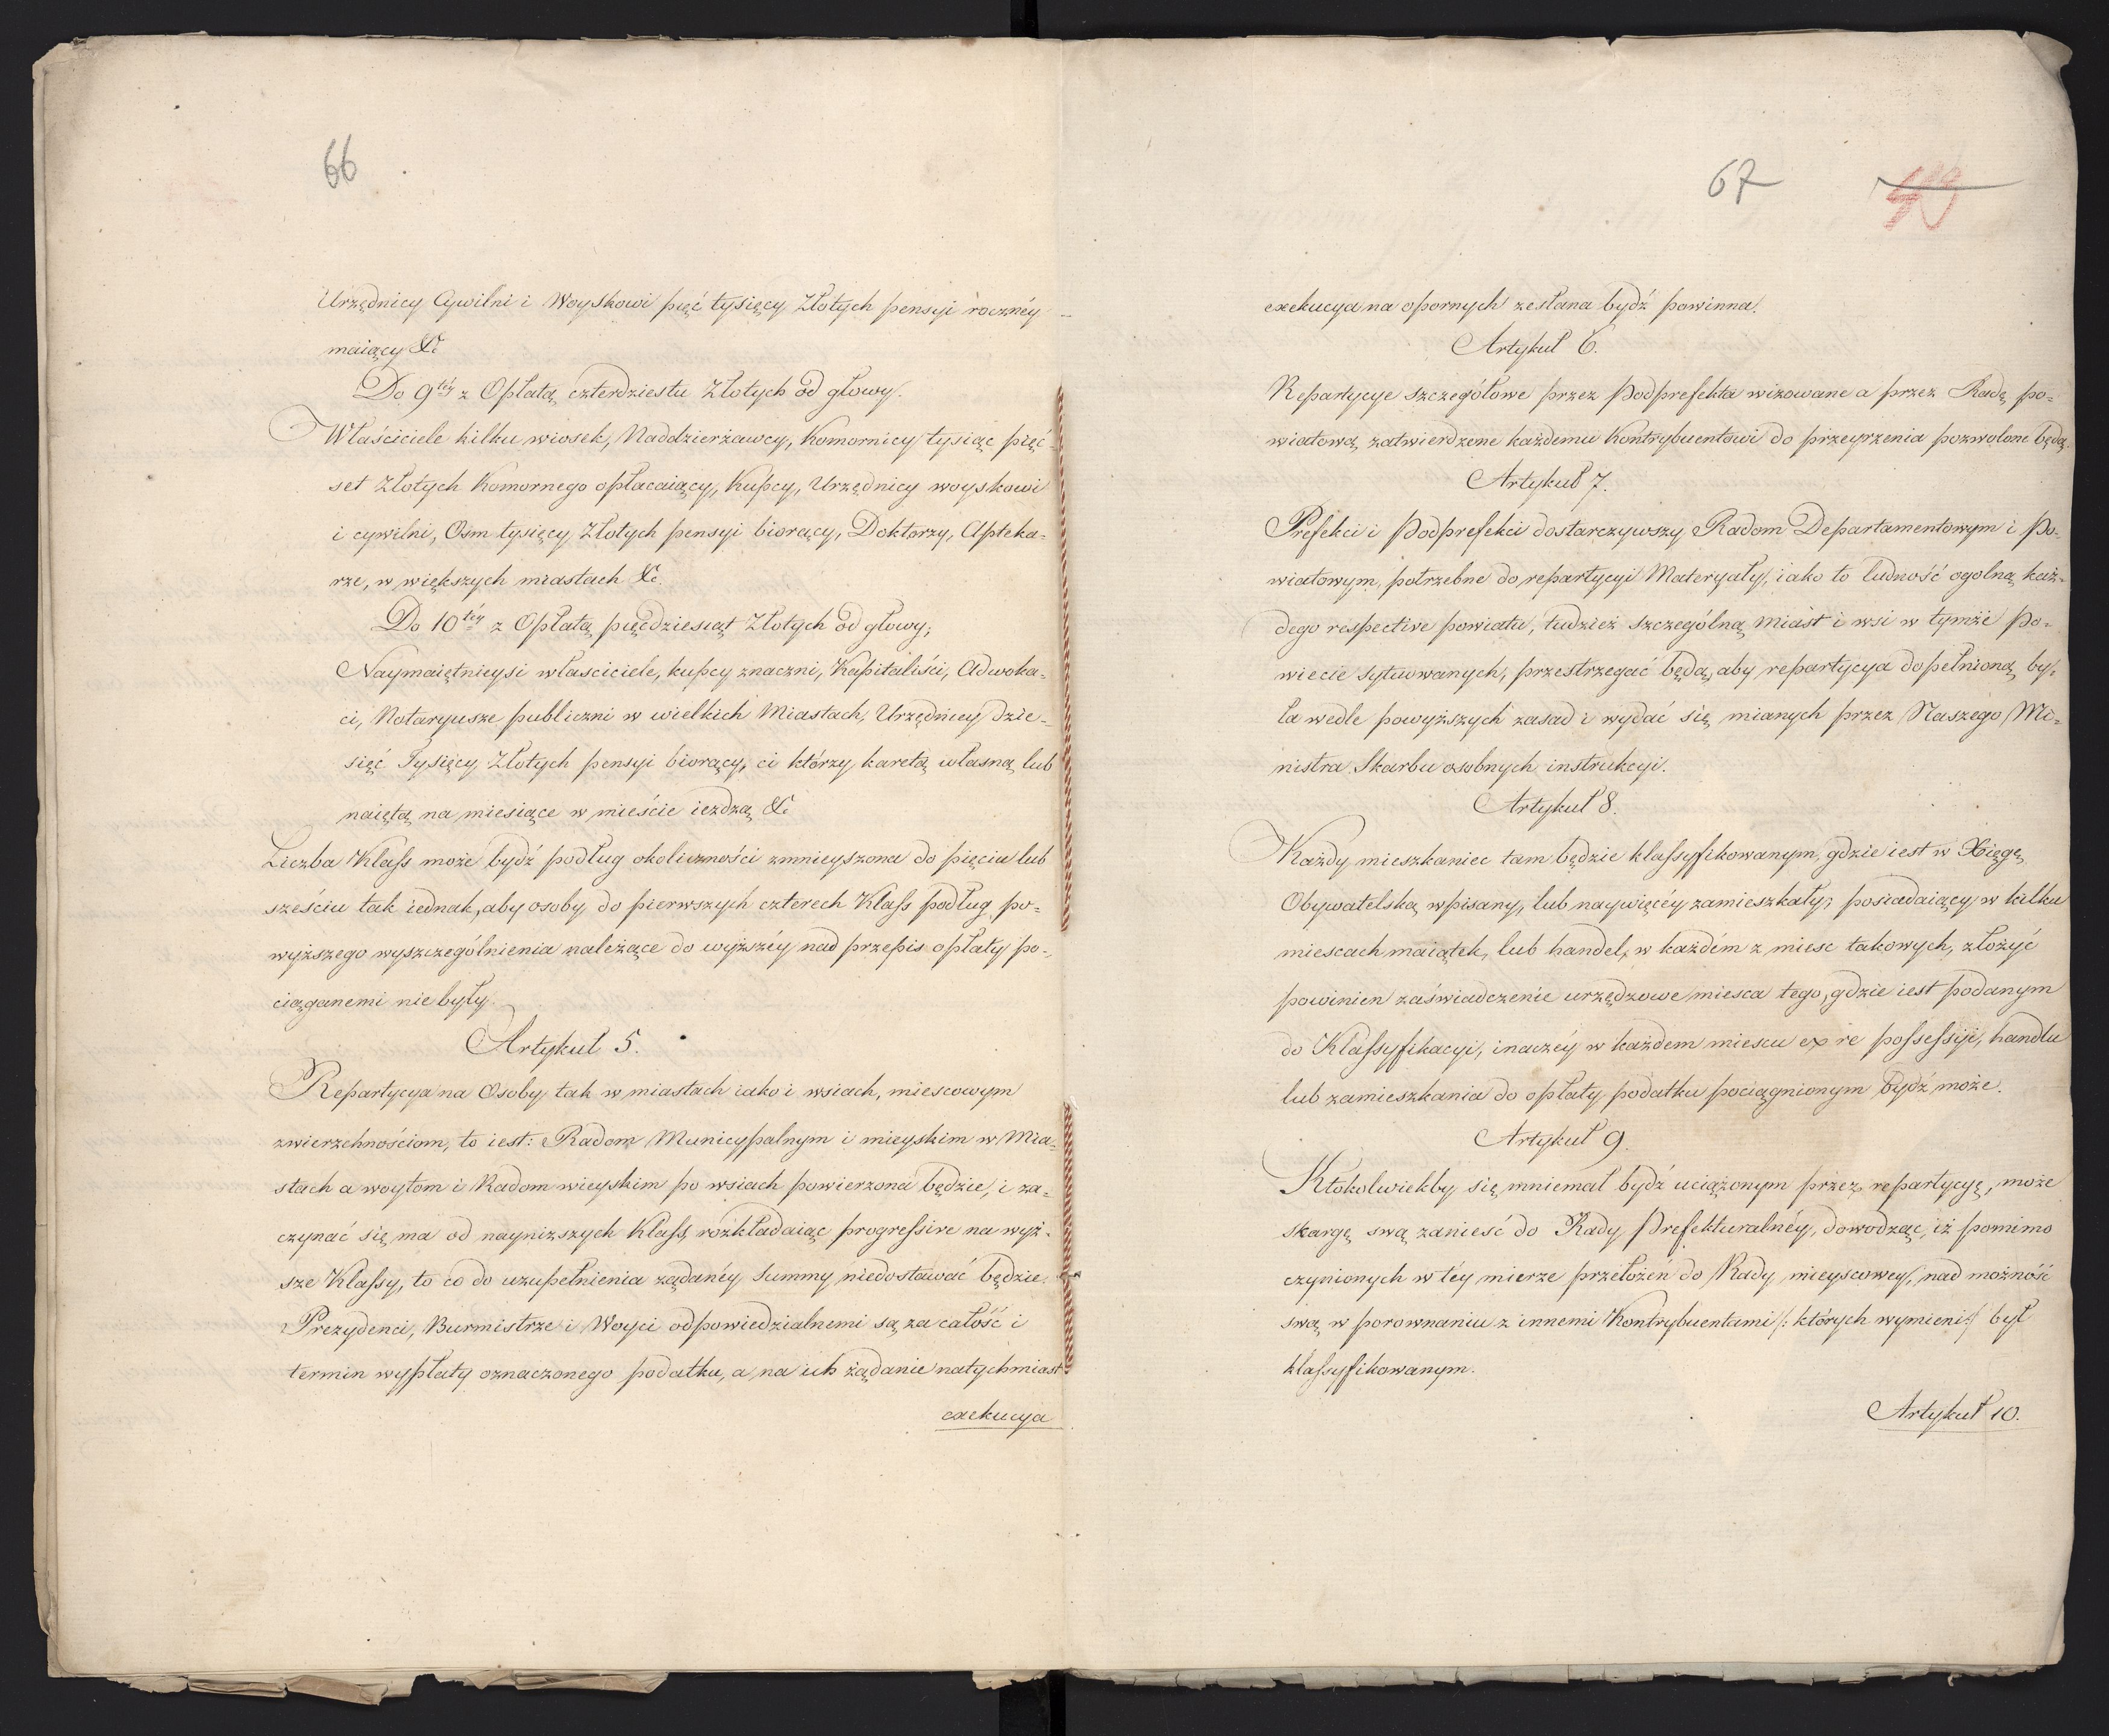 66
Urzędnicy Cywilni i Woyskowi pięć tysięcy Złotych pensyi rocznéy
maiący &c
Do 9téy z Opłatą czterdziestu Złotych od głowy.
Właściciele kilku wiosek, Naddzierżawcy, Komornicy tysiąc pięć-
set Złotych Komornego opłacaiący, Kupcy, Urzędnicy woyskowi
i cywilni, Osm tysięcy Złotych pensyi biorący, Doktorzy, Apteka-
rze, w większych miastach &c.
Do 10téy z Opłatą pięćdziesiąt Złotych od głowy;
Naymaiętnieysi własciciele, kupcy znaczni, Kapitaliści, Adwoka-
ci, Notaryusze publiczni w wielkich Miastach, Urzędnicy dzie-
sięć Tysięcy Złotych pensyi biorący, ci którzy karetą własną lub
naiętą na miesiące w mieście iezdzą &c
Liczba Klass może bydź podług okoliczności zmnieyszona do pięciu lub
sześciu tak iednak, aby osoby do pierwszych czterech Klass podług po=
wyższego wyszczególnienia należące do wyższéy nad przepis opłaty po-
ciąganemi nie były.
Artykuł 5.
Repartycya na Osoby tak w miastach iako i wsiach, miescowym
zwierzchnościom, to iest: Radom Municypalnym i mieyskim w Mia-
stach a woytom i Radom wieyskim po wsiach powierzona będzie, i za-
czynać się ma od naynizszych Klass, rozkładaiąc progressive na wyż-
sze Klassy, to co do uzupełnienia żądanéy Summy niedostawać będzie.
Prezydenci, Burmistrze i Woyci odpowiedzialnemi są za całość i
termin wypłaty oznaczonego podatku, a na ich żądanie natychmiast
exekucya
67
exekucya na opornych zesłana bydź powinna.
Artykuł 6.
Repartycye szczegółowe przez Podprefekta wizowane a przez Radę po=
wiatową zatwierdzone każdemu Kontrybuentowi do przeyrzenia pozwolone będą.
Artykuł 7.
Prefekci i Podprefekci dostarczywszy Radom Departamentowym i Po-
wiatowym, potrzebne do repartycyi Materyały, iako to ludność ogolną każ-
dego respective powiatu, tudzież szczególną miast i wsi w tymże Po-
wiecie sytuowanych, przestrzegać będą, aby repartycya dopełnioną by-
ła wedle powyższych zasad i wydać się mianych przez Naszego Mi=
nistra Skarbu osobnych instrukcyi.
Artykuł 8.
Każdy mieszkaniec tam będzie klassyfikowanym, gdzie iest w Xięgę
Obywatelską wpisany, lub naywięcéy zamieszkały; posiadaiący w kilku
miescach maiątek, lub handel, w każdém z miesc takowych, złożyć
powinien zaświadczenie urzędzowe miesca tego, gdzie iest podanym
do Klassyfikacyi, inaczéy w każdem miescu ex re possessyi, handlu
lub zamieszkania do opłaty podatku pociągnionym bydź może.
Artykuł 9.
Ktokolwiekby się mniemał bydź uciążonym przez repartycyę, może
skargę swą zanieść do Rady Prefekturalnéy, dowodząc, iż pomimo
czynionych w téy mierze przełożeń do Rady mieyscowey, nad możność
swą w porownaniu z innemi Kontrybuentami /: których wymieni :/ był
klassyfikowanym.
Artykuł 10.